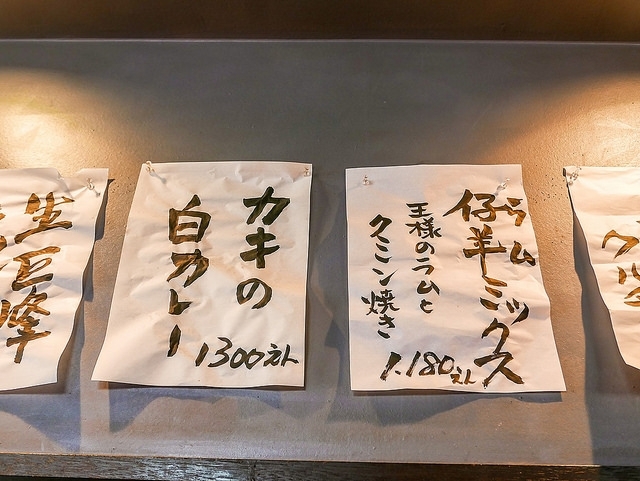 カキの
白カレー
1300えん
仔羊ミックス
ラム
王様のラムと
クミン焼き
1.180えん
生巨峰